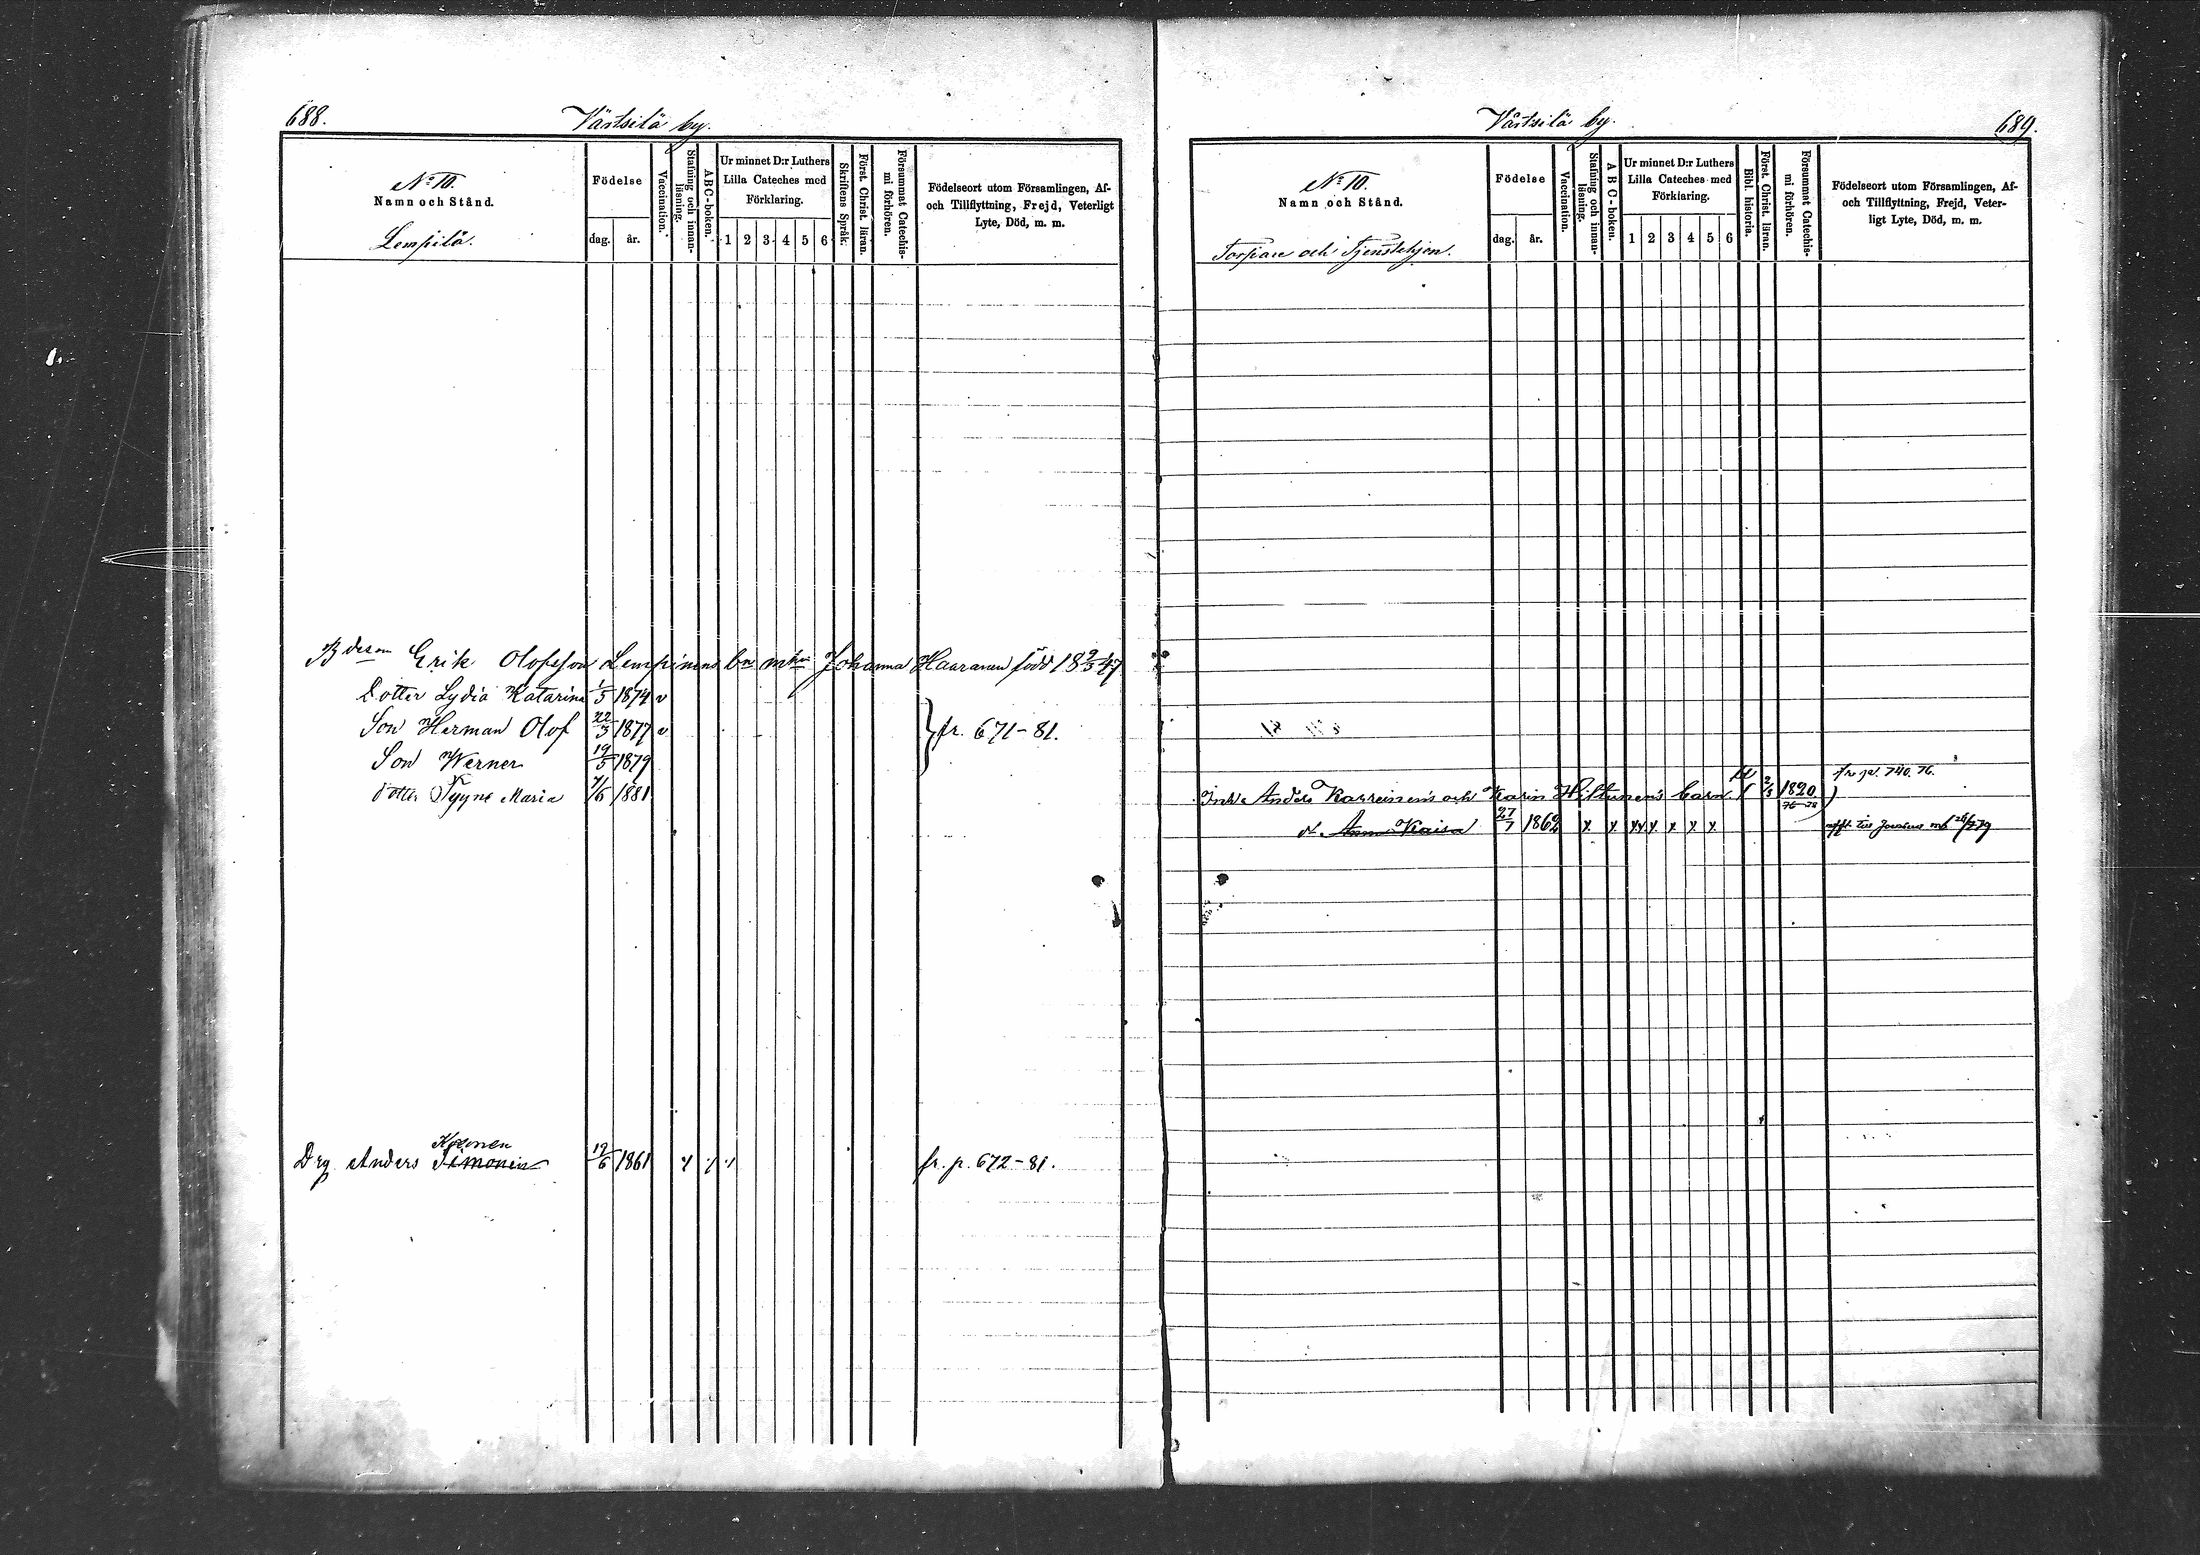 688.
Värtsilä by.
No 10.
Namn och Stånd.
Lempilä.
Födelse
dag. år.
Vaccination.
Stafning och innan-
läsning.
ABC-boken.
Ur minnet D:r Luthers
Lilla Cateches med
Förklaring.
1 2 3 4 5 6
Skriftens Språk.
Först. Christ. läran.
Försummat Catechis-
mi förhören.
Födelseort utom Församlingen, Af-
och Tillflyttning, Frejd, Veterligt
Lyte, Död, m. m.
Erik Olofsson Lempinens bn m Johanna Haaranen född 18 9/3 47
Dotter Lydia Katarina 1/5 1874 v
Son Herman Olof 22/3 1877 v } fr. 671-81.
Son Werner 19/5 1879
dotter Tyyne Maria 7/6 1881
Kononen
Drg Anders Simonen 19/6 1861 fr. p. 672-81.
Värtsilä by.
689.
No 10.
Namn och Stånd.
Torpare och Tjenstehjon.
Födelse
dag. år.
Vaccination.
Stafning och innan-
läsning.
ABC-boken.
Ur minnet D:r Luthers
Lilla Cateches med
Förklaring.
1 2 3 4 5 6
Bibl. historia.
Först. Christ. läran.
Försummat Catechis-
mi förhören.
Födelseort utom Församlingen, Af-
och Tillflyttning, Frejd, Veter-
ligt Lyte, Död, m. m.
fr. p. 740. 76.
Inh. Anders Karreinen's och Karin Hiltunen's barn. 2/3 1820
76-78
d. Anna Kaisa 27/7 1862 x x x x x x x x till